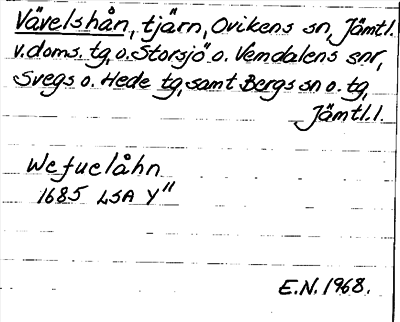 Vävelshån, tjärn, Ovikens sn, Jämtl.
v. doms. tg, o. Storsjö o. Vemdalens snr,
Svegs o. Hede tg, samt Bergs sn o. tg,
Jämtl. l.
Wefuelåhn
1685 LSA Y"
E.N. 1968.